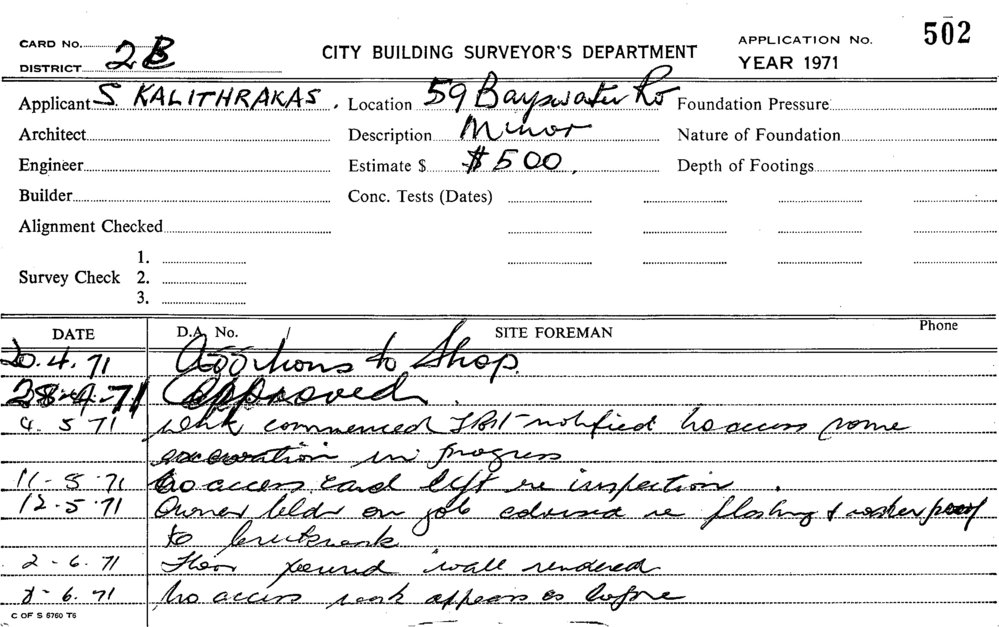 CARD No. 2B
DISTRICT
CITY BUILDING SURVEYOR'S DEPARTMENT
APPLICATION No. 502
YEAR 1971
Applicant S. KALITHRAKAS. Location 59 Bayswater Rd Foundation Pressure
Architect Description Minor Nature of Foundation
Engineer Estimate $ $500. Depth of Footings
Builder Conc. Tests (Dates)
Alignment Checked
1.
Survey Check 2.
3.
DATE D.A. No. SITE FOREMAN Phone
20.4.71 Additions to Shop.
28-4-71 Approved.
4.5 71 work commenced notified no access some
excavation in progress
11-5.71 No access card left re inspection.
12.5.71 Owner bldr on job advised re flashing & waterproof
to brickwork
2-6.71 Floor poured wall rendered
8-6.71 No access work appears as before
C OF S 6760 T6